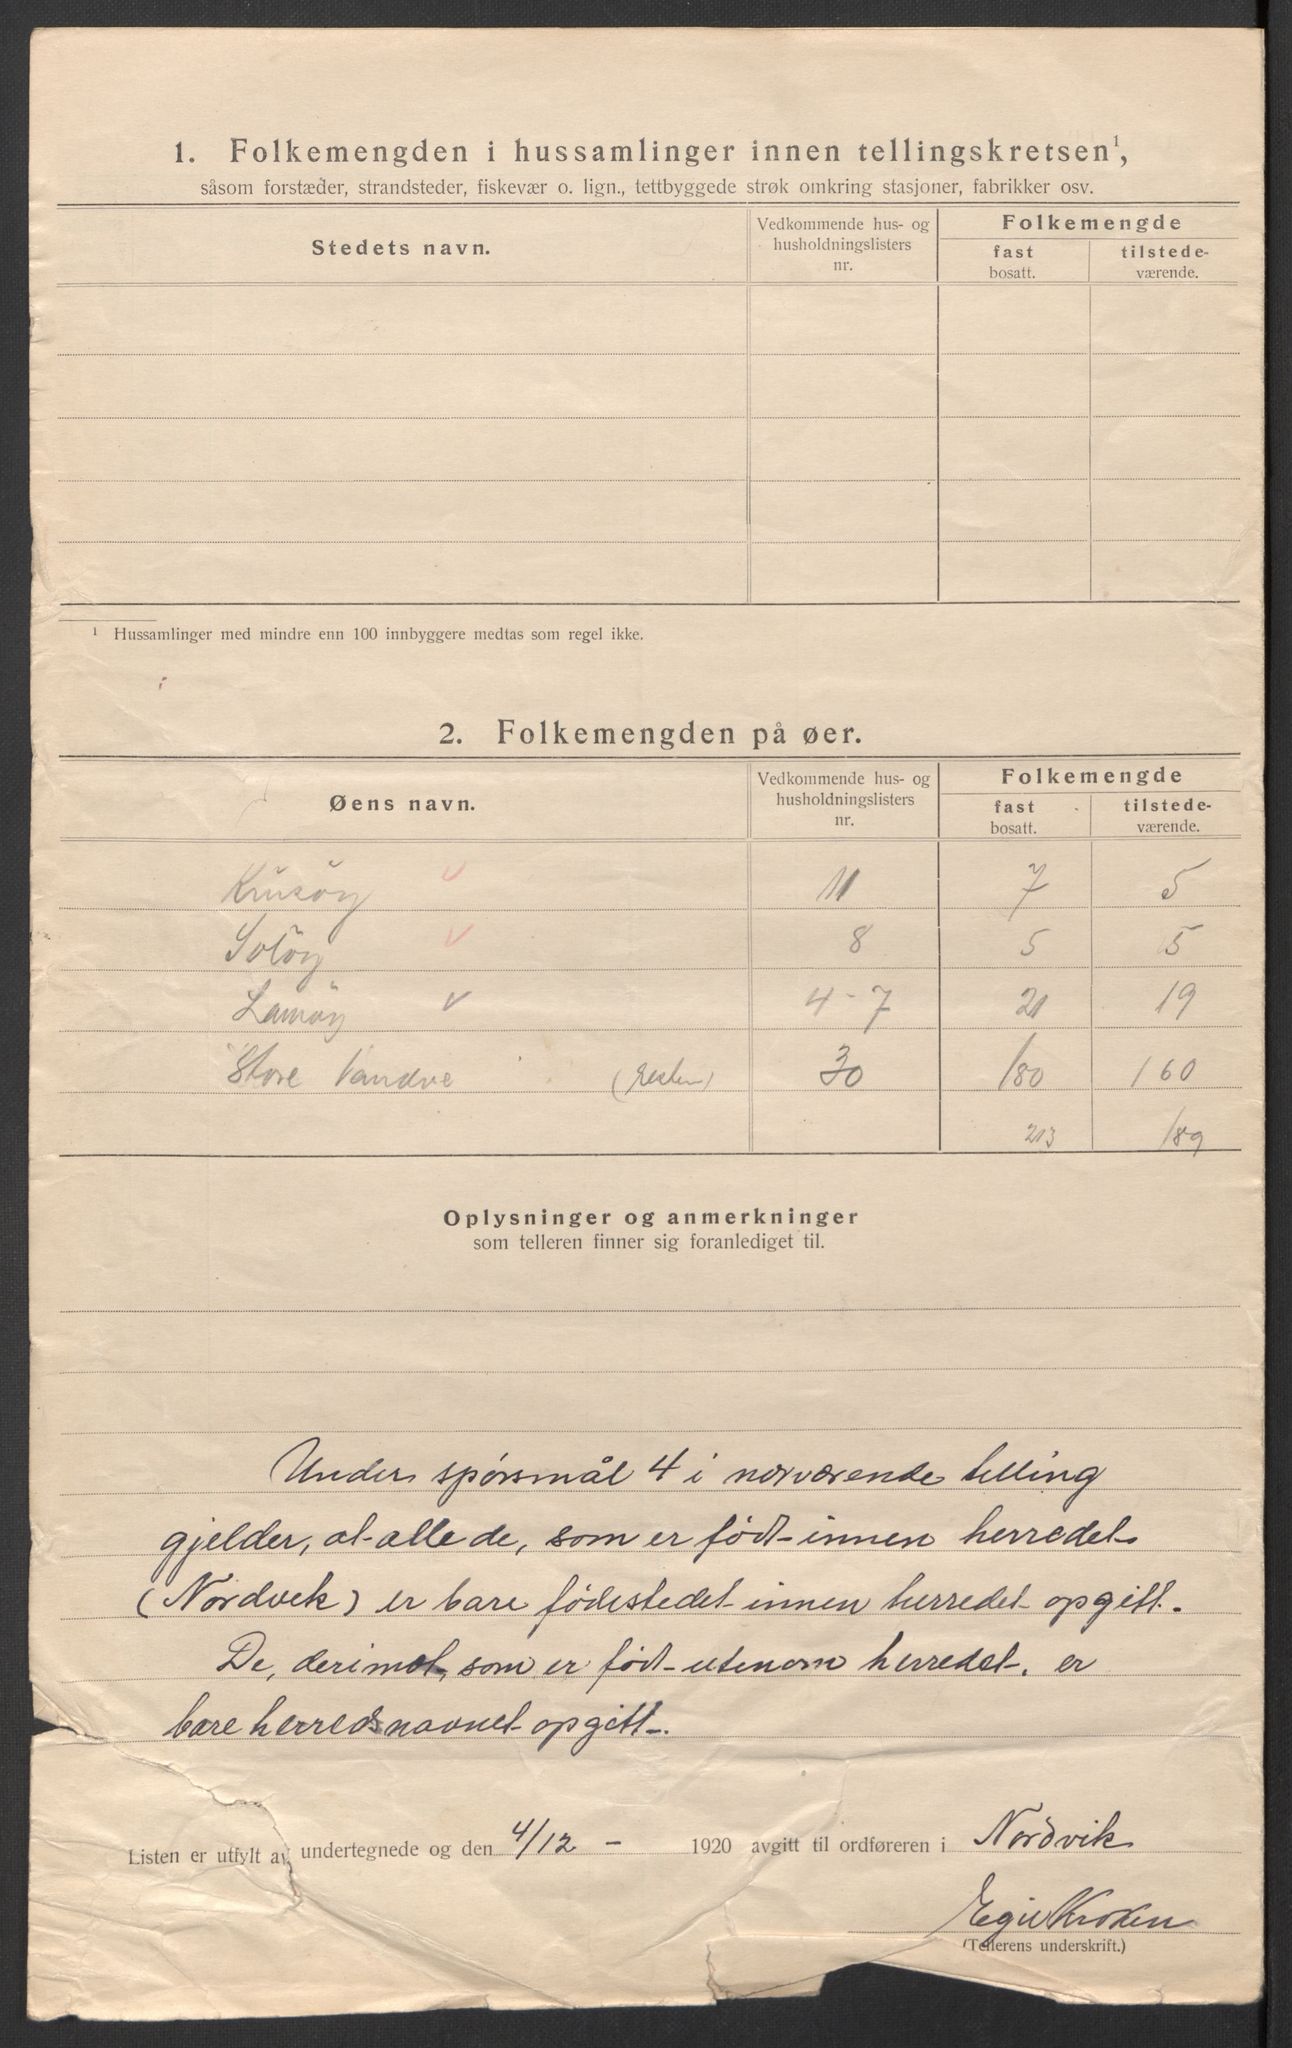 1. Folkemengden i hussamlinger innen tellingskretsen¹,
såsom forstæder, strandsteder, fiskevær o. lign., tettbyggede strøk omkring stasjoner, fabrikker osv.
Stedets navn.
Vedkommende hus- og
husholdningslisters
nr.
Folkemengde
fast
bosatt.
tilstede-
værende.
¹ Hussamlinger med mindre enn 100 innbyggere medtas som regel ikke.
2. Folkemengden på øer.
Øens navn.
Vedkommende hus- og
husholdningslisters
nr.
Folkemengde
fast
bosatt.
tilstede-
værende.
Krusøy v 11 7 5
Soløy v 8 5 5
Lamøy v 4-7 21 19
Store Vandve (resten) 30 180 160
213 189
Oplysninger og anmerkninger
som telleren finner sig foranlediget til.
Under spørsmål 4 i nærværende telling
gjelder, at alle de, som er født innen herredet
(Nordvik) er bare fødestedet innen herredet opgitt.
De, derimot, som er født utenom herredet, er
bare herredsnavnet opgitt.
Listen er utfylt av undertegnede og den 4/12 - 1920 avgitt til ordføreren i Nordvik
Egil Kroken
(Tellerens underskrift.)